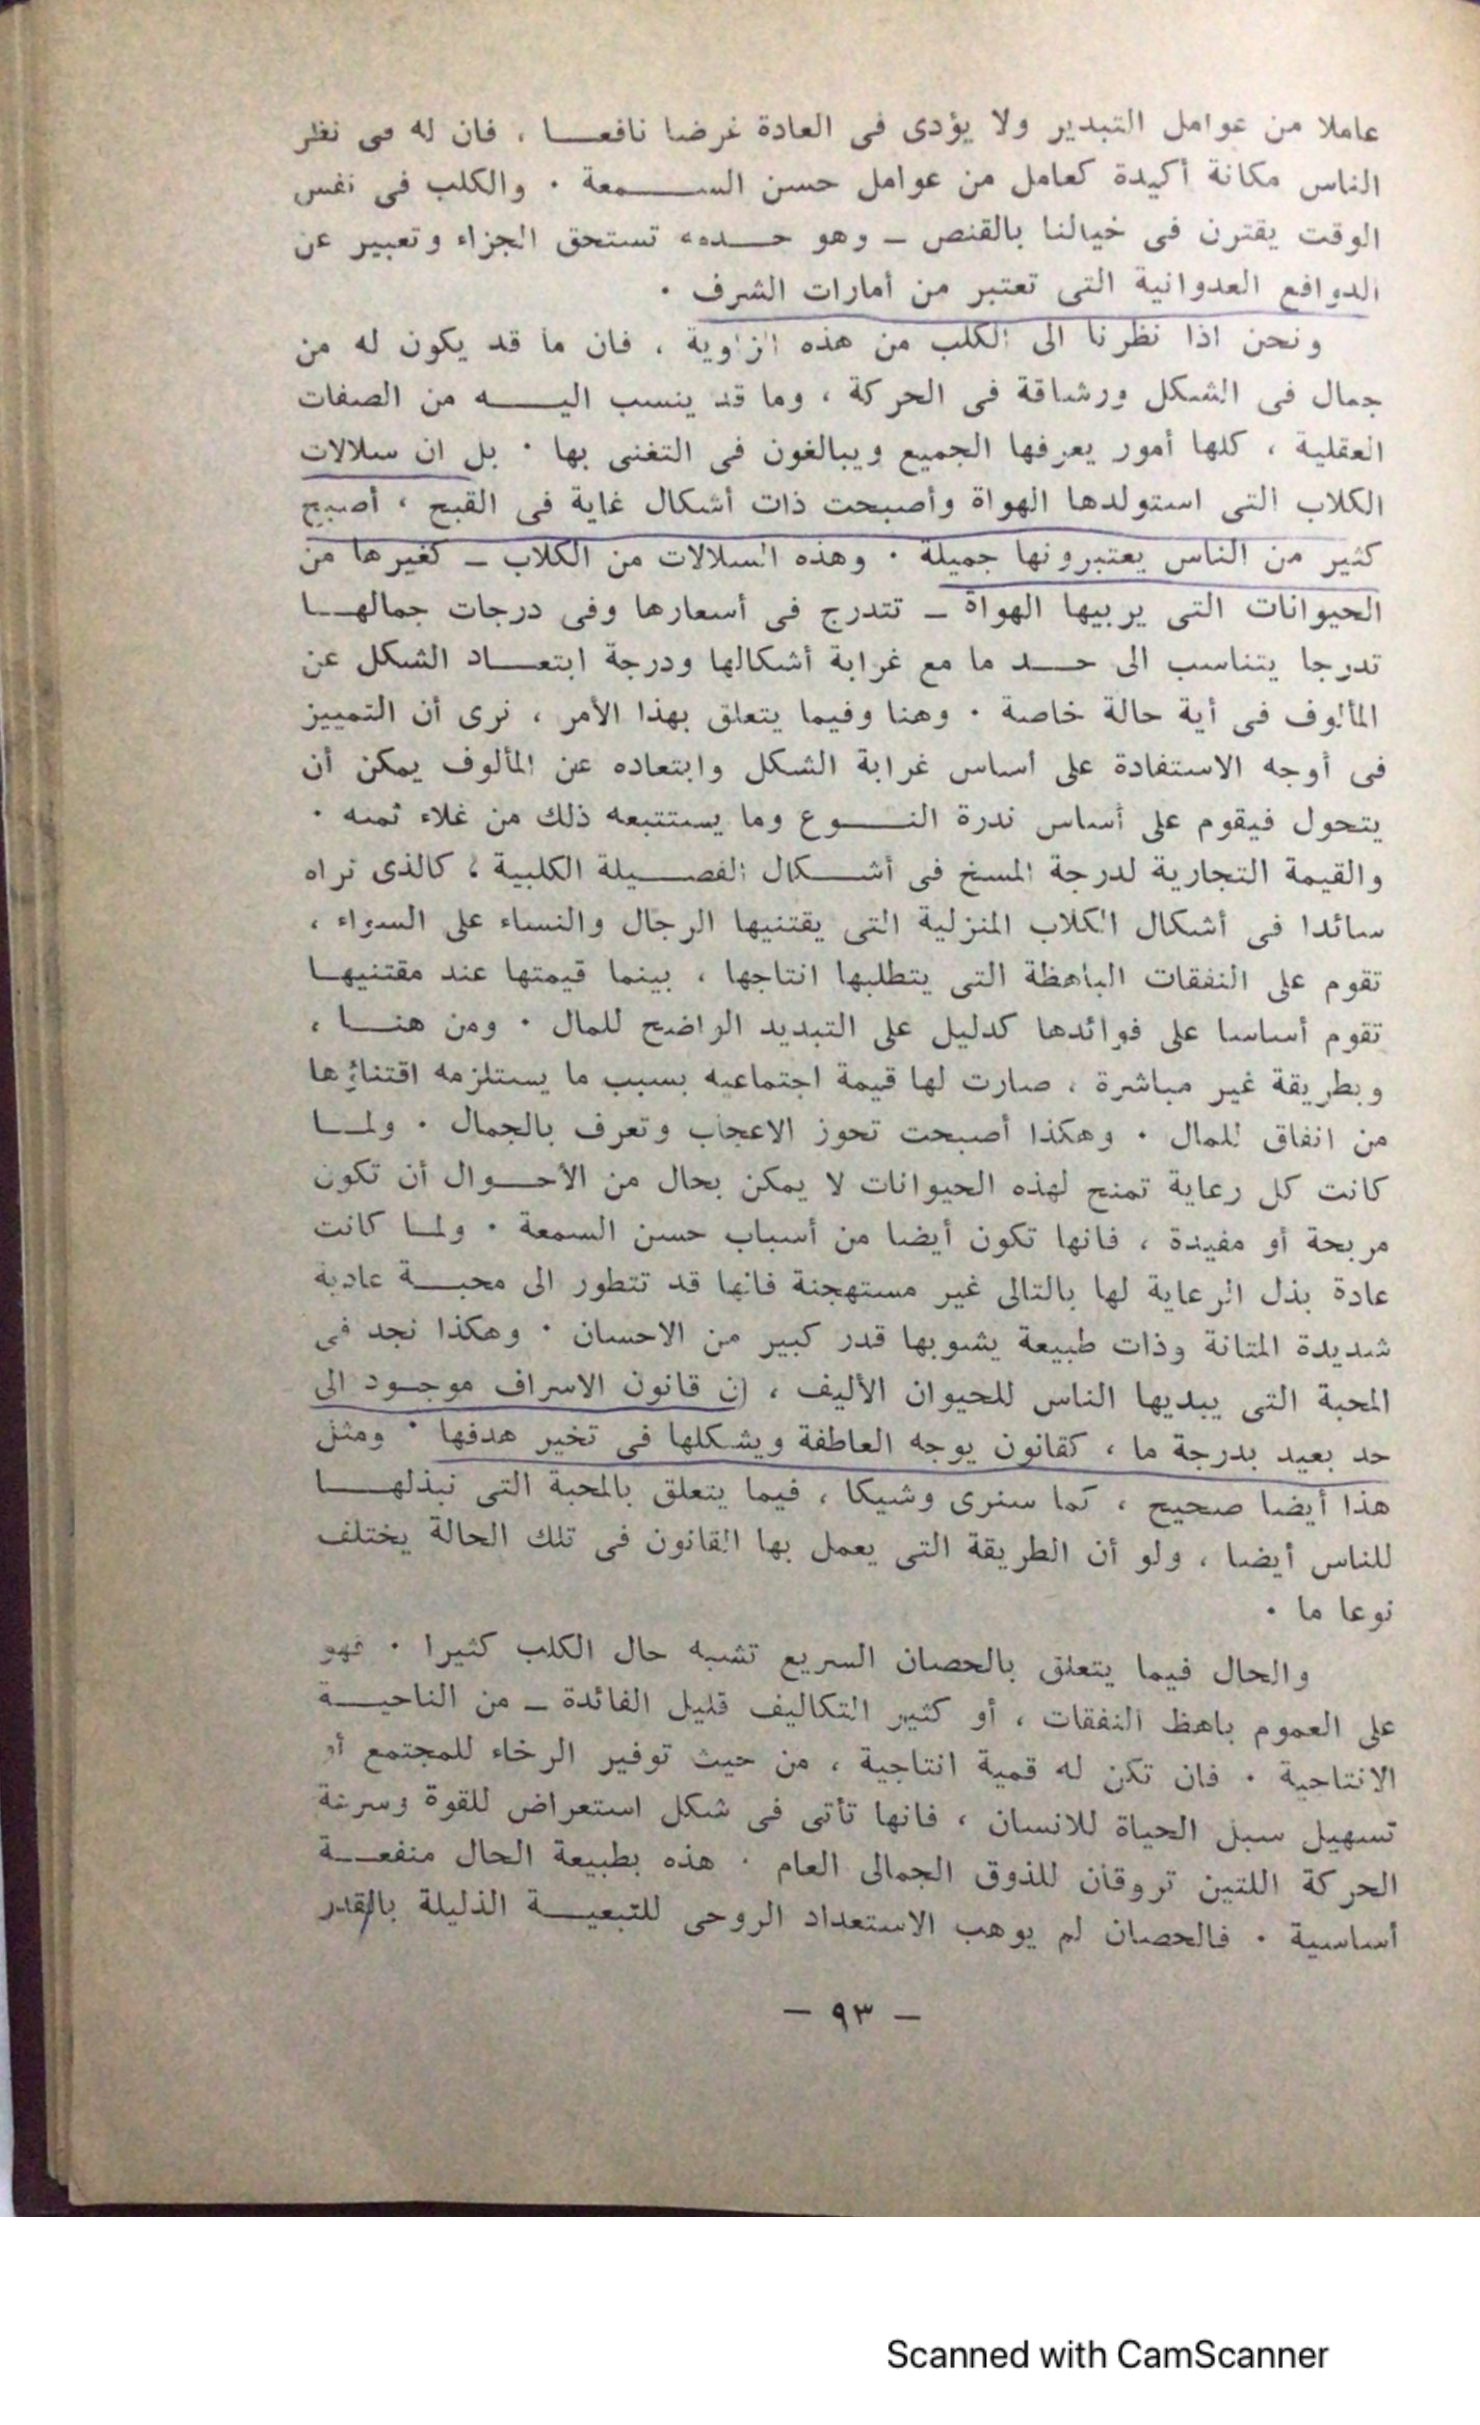 عاملا من عوامل التبدير ولا يؤدى فى العادة غرضا نافعا ، فان له فى نظر
الناس مكانة أكيدة كعامل من عوامل حسن السمعة ٠ والكلب فى نفس
الوقت يقترن فى خيالنا بالقنص ـ وهو حده تستحق الجزاء وتعبير عن
الدوافع العدوانية التى تعتبر من أمارات الشرف ٠
ونحن اذا نظرنا الى الكلب من هذه الزاوية ، فان ما قد يكون له من
جمال فى الشكل ورشاقة فى الحركة ، وما قد ينسب اليه من الصفات
العقلية ، كلها أمور يعرفها الجميع ويبالغون فى التغنى بها ٠ بل ان سلالات
الكلاب التى استولدها الهواة وأصبحت ذات أشكال غاية فى القبح ، أصبح
كثير من الناس يعتبرونها جميلة ٠ وهذه السلالات من الكلاب ـ كغيرها من
الحيوانات التى يربيها الهواة ـ تتدرج فى أسعارها وفى درجات جمالها
تدرجا يتناسب الى حد ما مع غرابة أشكالها ودرجة ابتعاد الشكل عن
المألوف فى أية حالة خاصة ٠ وهنا وفيما يتعلق بهذا الأمر ، نرى أن التمييز
فى أوجه الاستفادة على أساس غرابة الشكل وابتعاده عن المألوف يمكن أن
يتحول فيقوم على أساس ندرة النوع وما يستتبعه ذلك من غلاء ثمنه ٠
والقيمة التجارية لدرجة المسخ فى أشكال الفصيلة الكلبية ، كالذى نراه
سائدا فى أشكال الكلاب المنزلية التى يقتنيها الرجال والنساء على السواء ،
تقوم على النفقات الباهظة التى يتطلبها انتاجها ، بينما قيمتها عند مقتنيها
تقوم أساسا على فوائدها كدليل على التبديد الواضح للمال ٠ ومن هنا ،
وبطريقة غير مباشرة ، صارت لها قيمة اجتماعيه بسبب ما يستلزمه اقتناؤها
من انفاق للمال ٠ وهكذا أصبحت تحوز الاعجاب وتعرف بالجمال ٠ ولما
كانت كل رعاية تمنح لهذه الحيوانات لا يمكن بحال من الأحوال أن تكون
مربحة أو مفيدة ، فانها تكون أيضا من أسباب حسن السمعة ٠ ولما كانت
عادة بذل الرعاية لها بالتالى غير مستهجنة فانها قد تتطور الى محبة عادية
شديدة المتانة وذات طبيعة يشوبها قدر كبير من الاحسان ٠ وهكذا نجد فى
المحبة التى يبديها الناس للحيوان الأليف ، ان قانون الاسراف موجود الى
حد بعيد بدرجة ما ، كقانون يوجه العاطفة ويشكلها فى تخير هدفها ٠ ومثل
هذا أيضا صحيح ، كما سنرى وشيكا ، فيما يتعلق بالمحبة التى نبذلها
للناس أيضا ، ولو أن الطريقة التى يعمل بها القانون فى تلك الحالة يختلف
نوعا ما ٠
والحال فيما يتعلق بالحصان السريع تشبه حال الكلب كثيرا ٠ فهو
على العموم باهظ النفقات ، أو كثير التكاليف قليل الفائدة ـ من الناحية
الانتاجية ٠ فان تكن له قمية انتاجية ، من حيث توفير الرخاء للمجتمع أو
تسهيل سبل الحياة للانسان ، فانها تأتى فى شكل استعراض للقوة وسرعة
الحركة اللتين تروقان للذوق الجمالى العام ٠ هذه بطبيعة الحال منفعة
أساسية ٠ فالحصان لم يوهب الاستعداد الروحى للتبعية الذليلة بالقدر
ـ ٩٣ ـ
Scanned with CamScanner